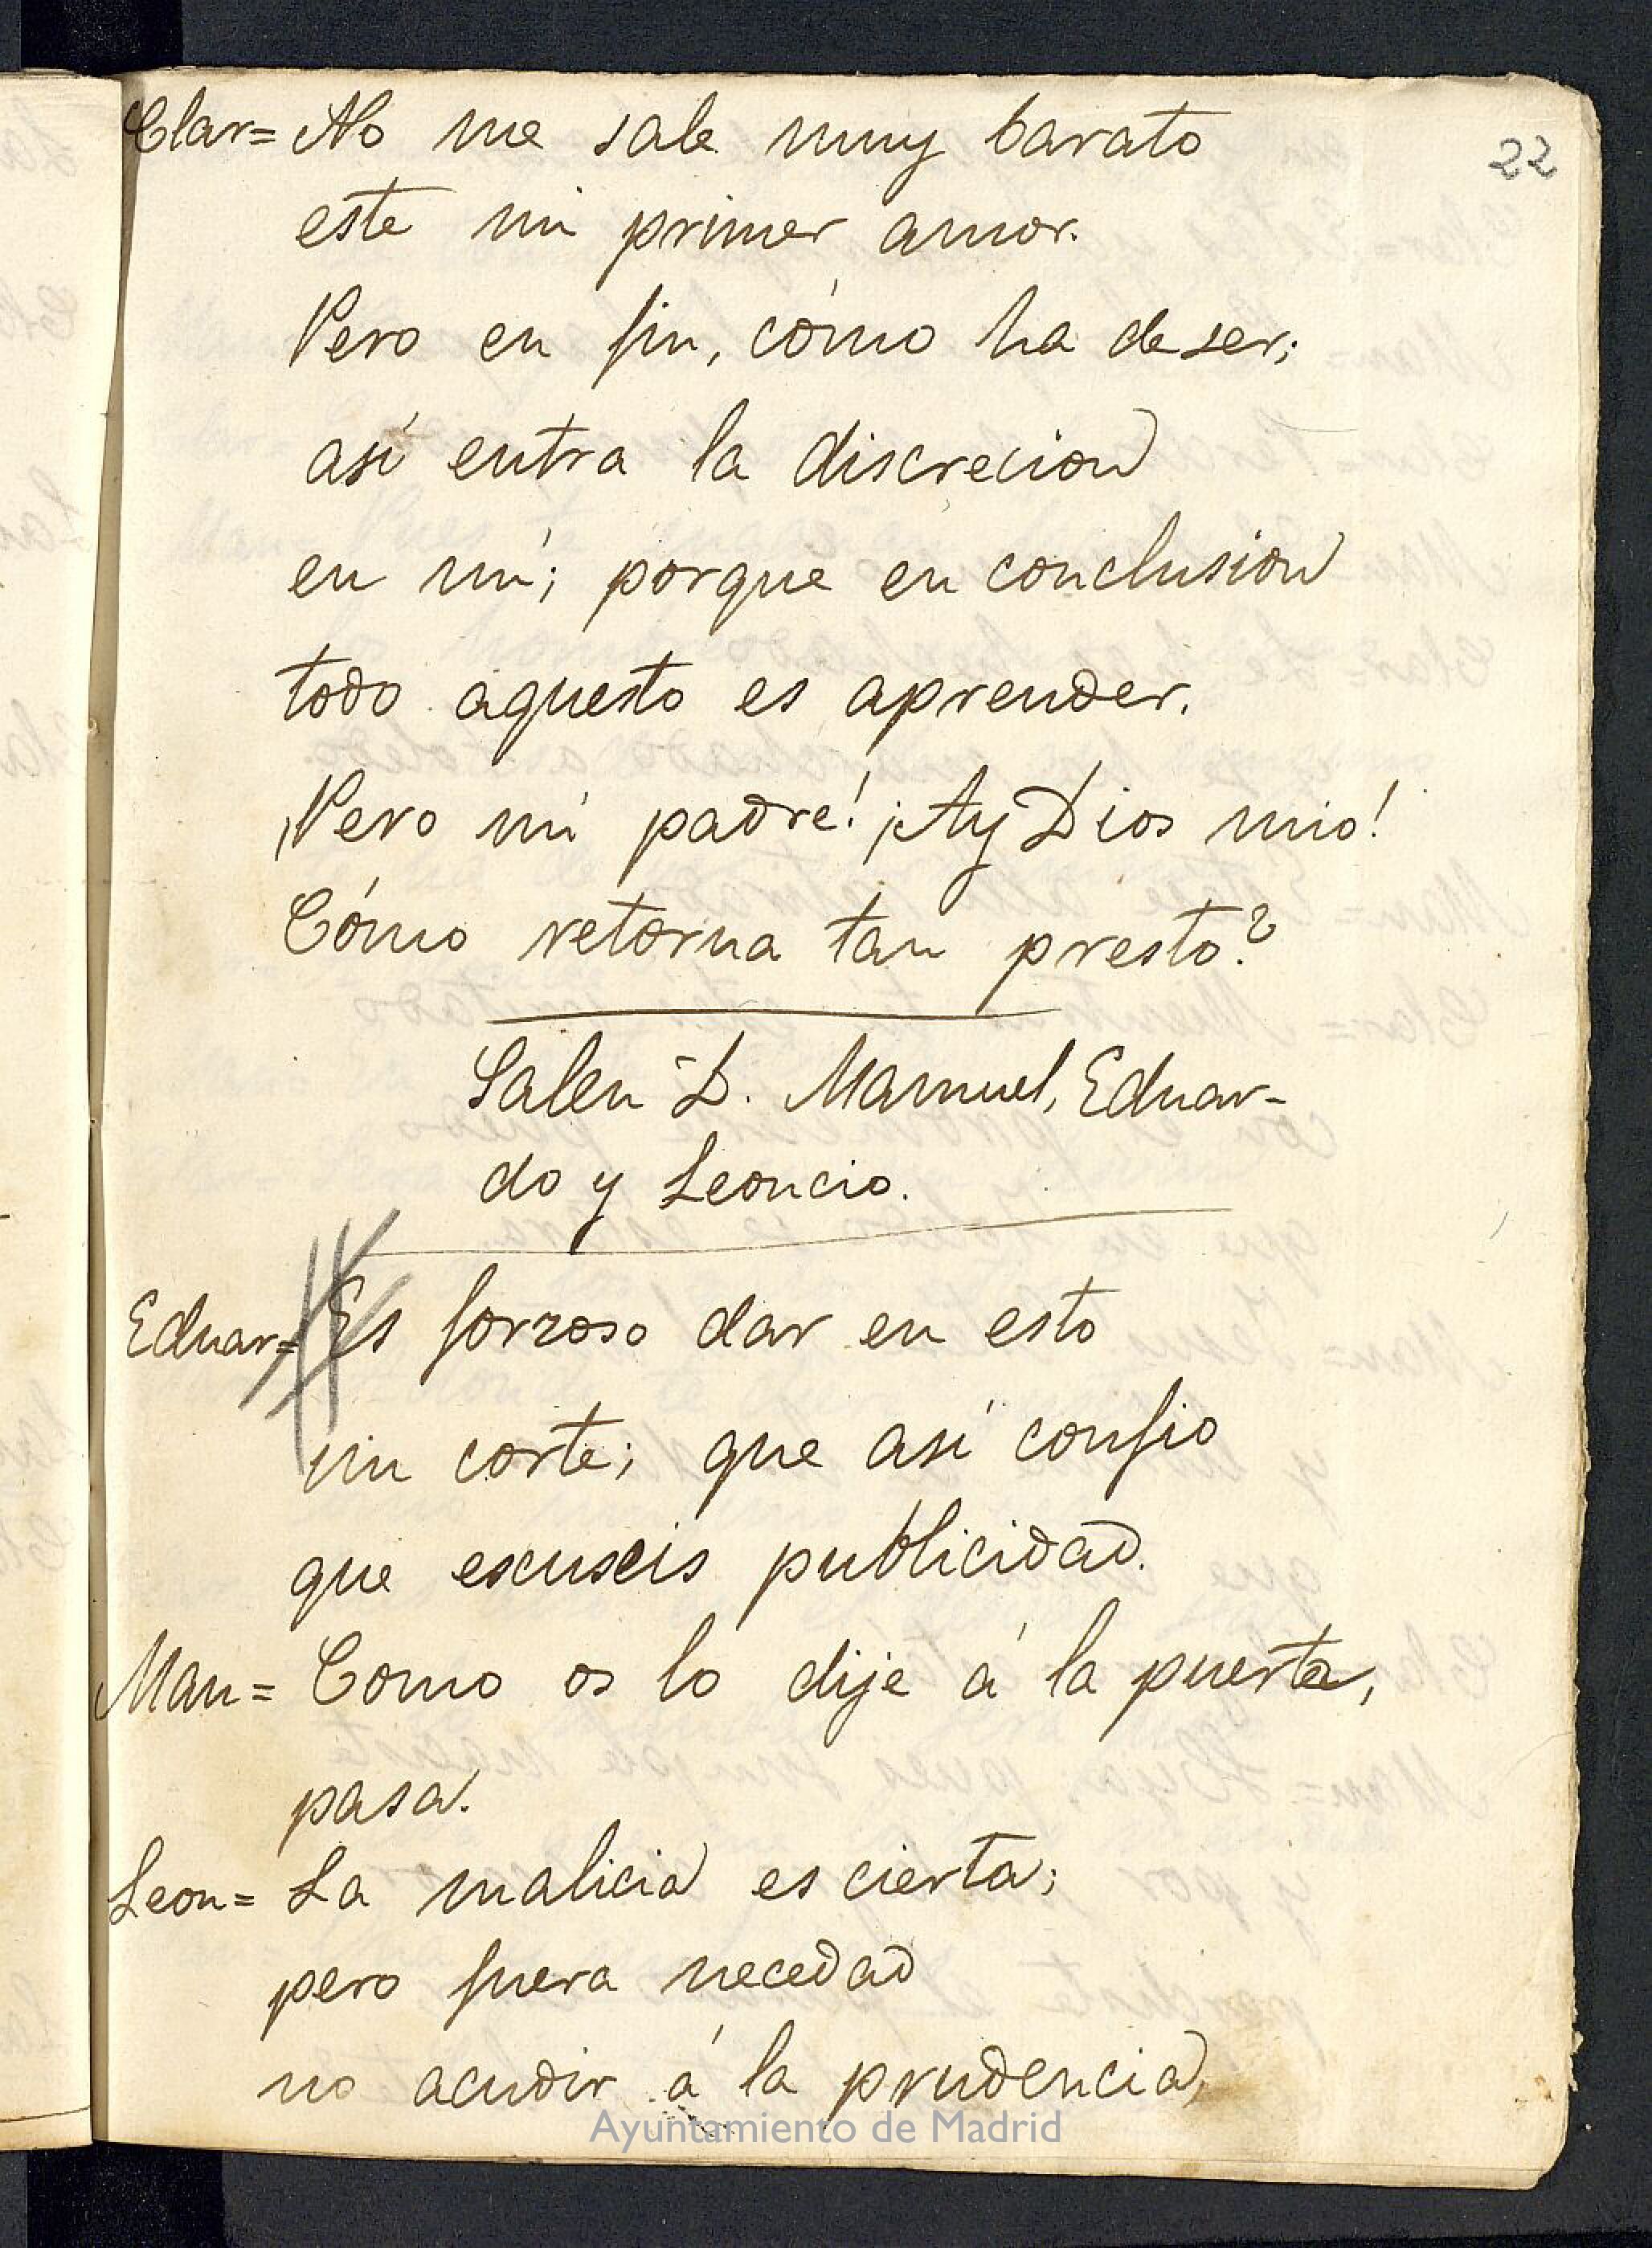 22
Clar= No me sale muy barato
este mi primer amor.
Pero en fin, cómo ha de ser;
así entra la discrecion
en mí; porque en conclusion
todo aquesto es aprender.
¡Pero mi padre! ¡Ay Dios mio!
Cómo retorna tan presto?
Salen D. Manuel, Eduar-
do y Leoncio.
Eduar= Es forzoso dar en esto
un corte; que así confio
que escuseis publicidad.
Man= Como os lo dije á la puerta,
pasa.
Leon= La malicia es cierta;
pero fuera necedad
no acudir á la prudencia,
Ayuntamiento de Madrid